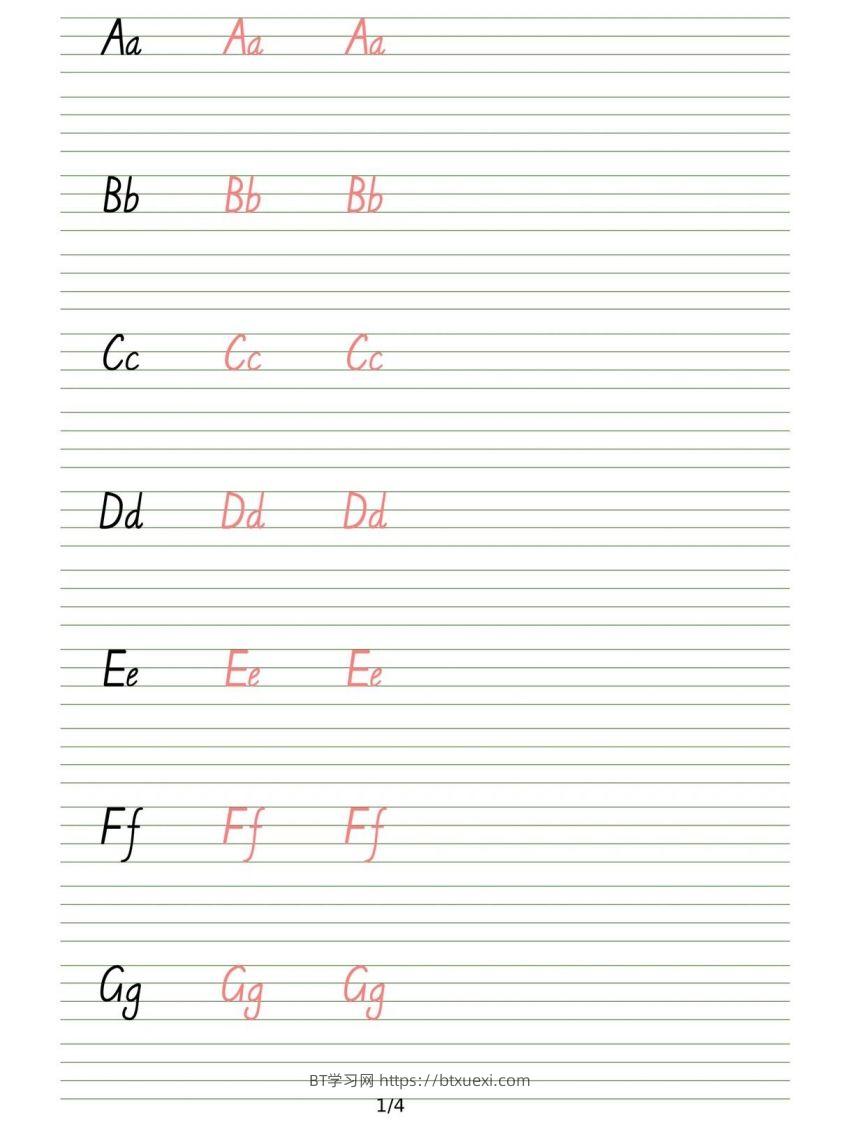 Aa Aa Aa
Bb Bb Bb
Cc Cc Cc
Dd Dd Dd
Ee Ee Ee
Ff Ff Ff
Gg Gg Gg
BT学习网 https://btxuexi.com
1/4